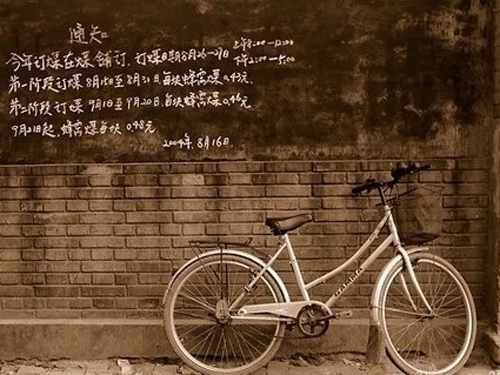 通知
今年订煤在煤铺订.订煤日期8月26—29日 上午8:00—12:00
下午2:00—5:00
第一阶段订煤8月15日至8月31日每块蜂窝煤0.43元.
第二阶段订煤9月1日至9月20日每块蜂窝煤0.46元
9月21日起,蜂窝煤每块0.48元
2004年8月16日.